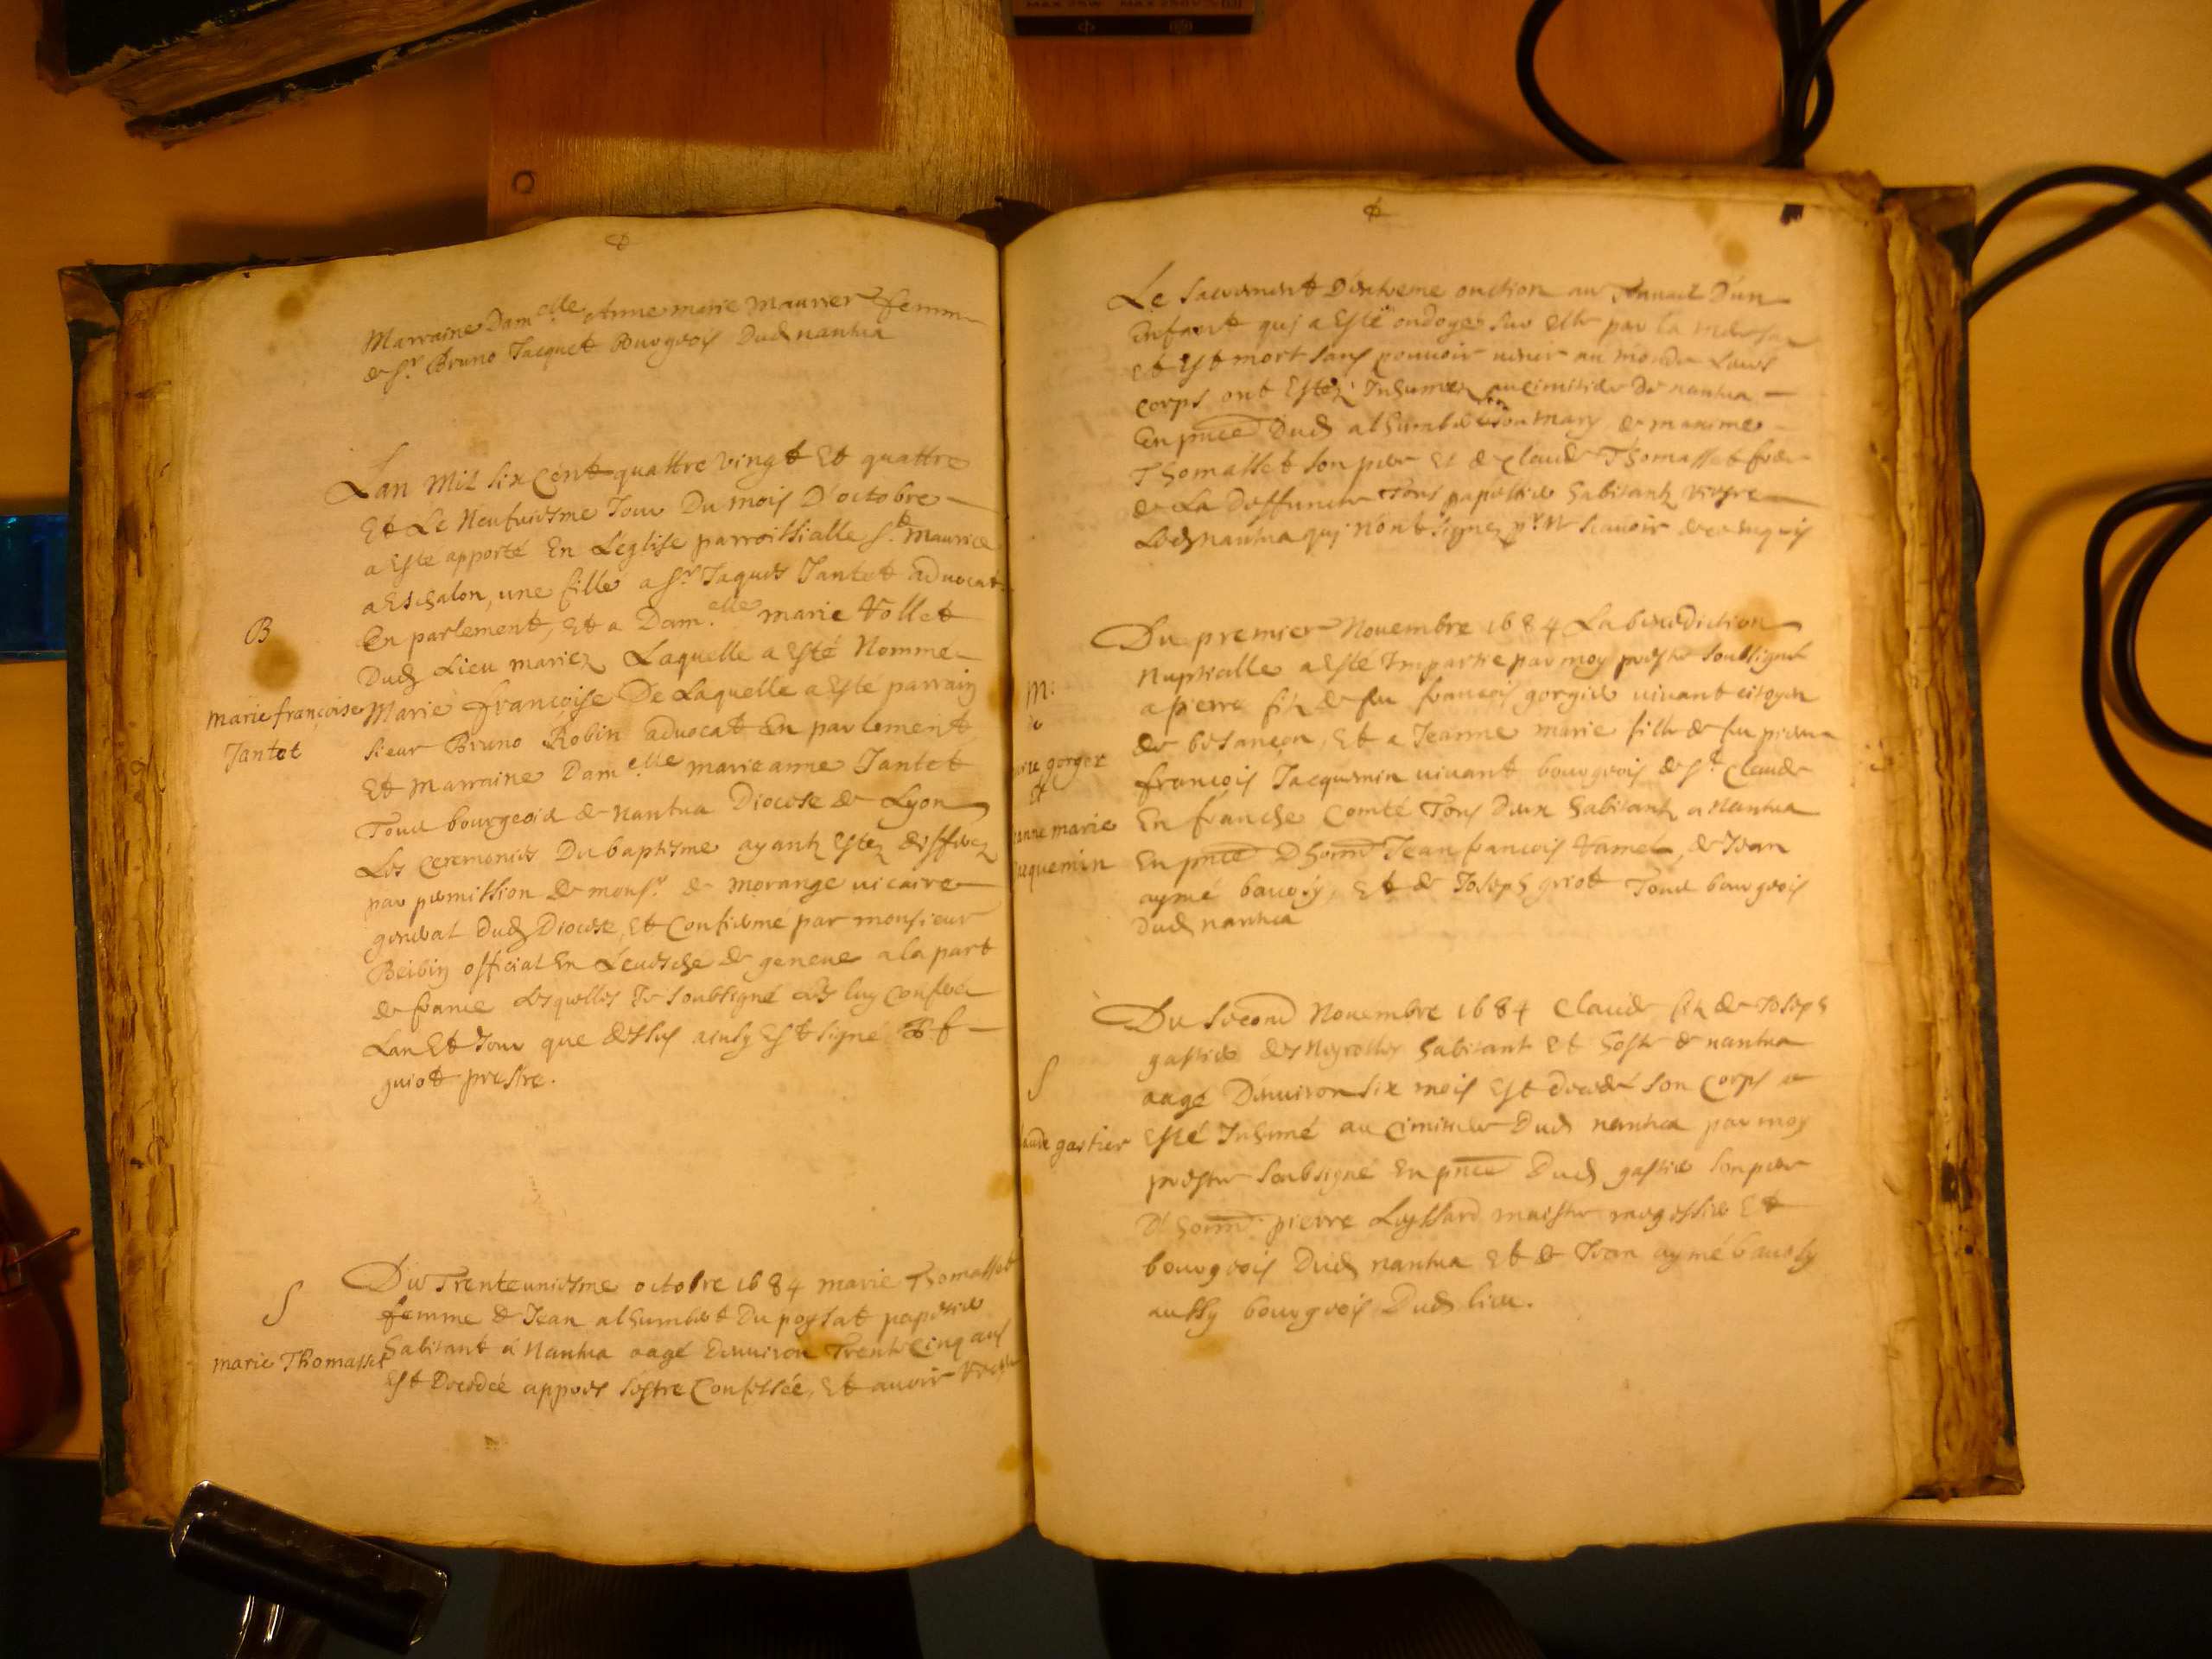 Marraine Dam.elle Anne marie Maurier femme
de Sr. Bruno Jacquet Bourgeois Dud nantua
Lan Mil six Cent quattre vingt Et quattre
Et Le Neufviesme Jour Du mois D'octobre
a Este apporté En L'eglise parroissialle St. Maurice
a Eschalon, une fille a Sr Jaques Jantet advocat
En parlement, Et a Dam.elle marie Vollet
Dud Lieu mariez Laquelle a Esté Nommé
B
marie françoise
Jantet
Marie françoise De Laquelle a Esté parrain
sieur Bruno Robin advocat En parlement
Et Marraine Dam.elle marie anne Jantet
Tous bourgeois de Nantua Diocese de Lyon
Les Ceremonies Du baptesme ayantz Estez
par permission de monsr. de morange vicaire
general Dud Diocese, Et Confirmé par monsieur
official En Levesche de geneve a la part
de france Lesquelles Je soubsigné
Lan Et Jour que dessus ainsy Est signé
guiot prestre.
Du Trenteuniesme octobre 1684 marie Thomasset
femme de Jean alhumbert Du poysat
habitant a Nantua aagé Denviron Trente Cinq ans
Est Decedeé appres sestre Confessée, Et avoir
S
marie Thomasset
Le sacrement D'extreme onction au D'un
Enfant qui a Esté ondoyé sur elle par la
et Est mort sans pouvoir venir au monde Leurs
corps ont Estez Inhumez au Cimitiere De nantua
En pnce Dud alhumbert son mary de maxime
Thomasset son pere Et de Claude Thomasset frere
de La Deffuncte Tous habitantz
Led nantua qui N'ont signez pr. Ne scavoir de ce enquis
Du premier Novembre 1684 La benediction
Nuptialle a Esté Impartie par moy prestre soubsigné
a pierre filz de feu françois gorgier vivant citoyen
de besançon, Et a Jeanne marie fille de feu
françois Jacquemin vivant bourgeois de St. Claude
En franche Comté Tous Deux habitantz a Nantua
En pnce Jean françois hamel, de Jean
aymé Et de Joseph griot Tous bourgeois
Dud nantua
M.
gorger
et
anne marie
acquemin
Du second Novembre 1684 Claude filz de Joseph
gastier des Neyrolles habitant Et hoste de nantua
aagé D'environ six mois Est decedé son Corps a
Esté Inhumé au Cimitiere Dud nantua par moy
prestre soubsigné En pnce Dud gastier son pere
pierre maistre Et
bourgeois Dud nantua Et de Jean aymé
aussy bourgeois Dud lieu.
S
aude gastier